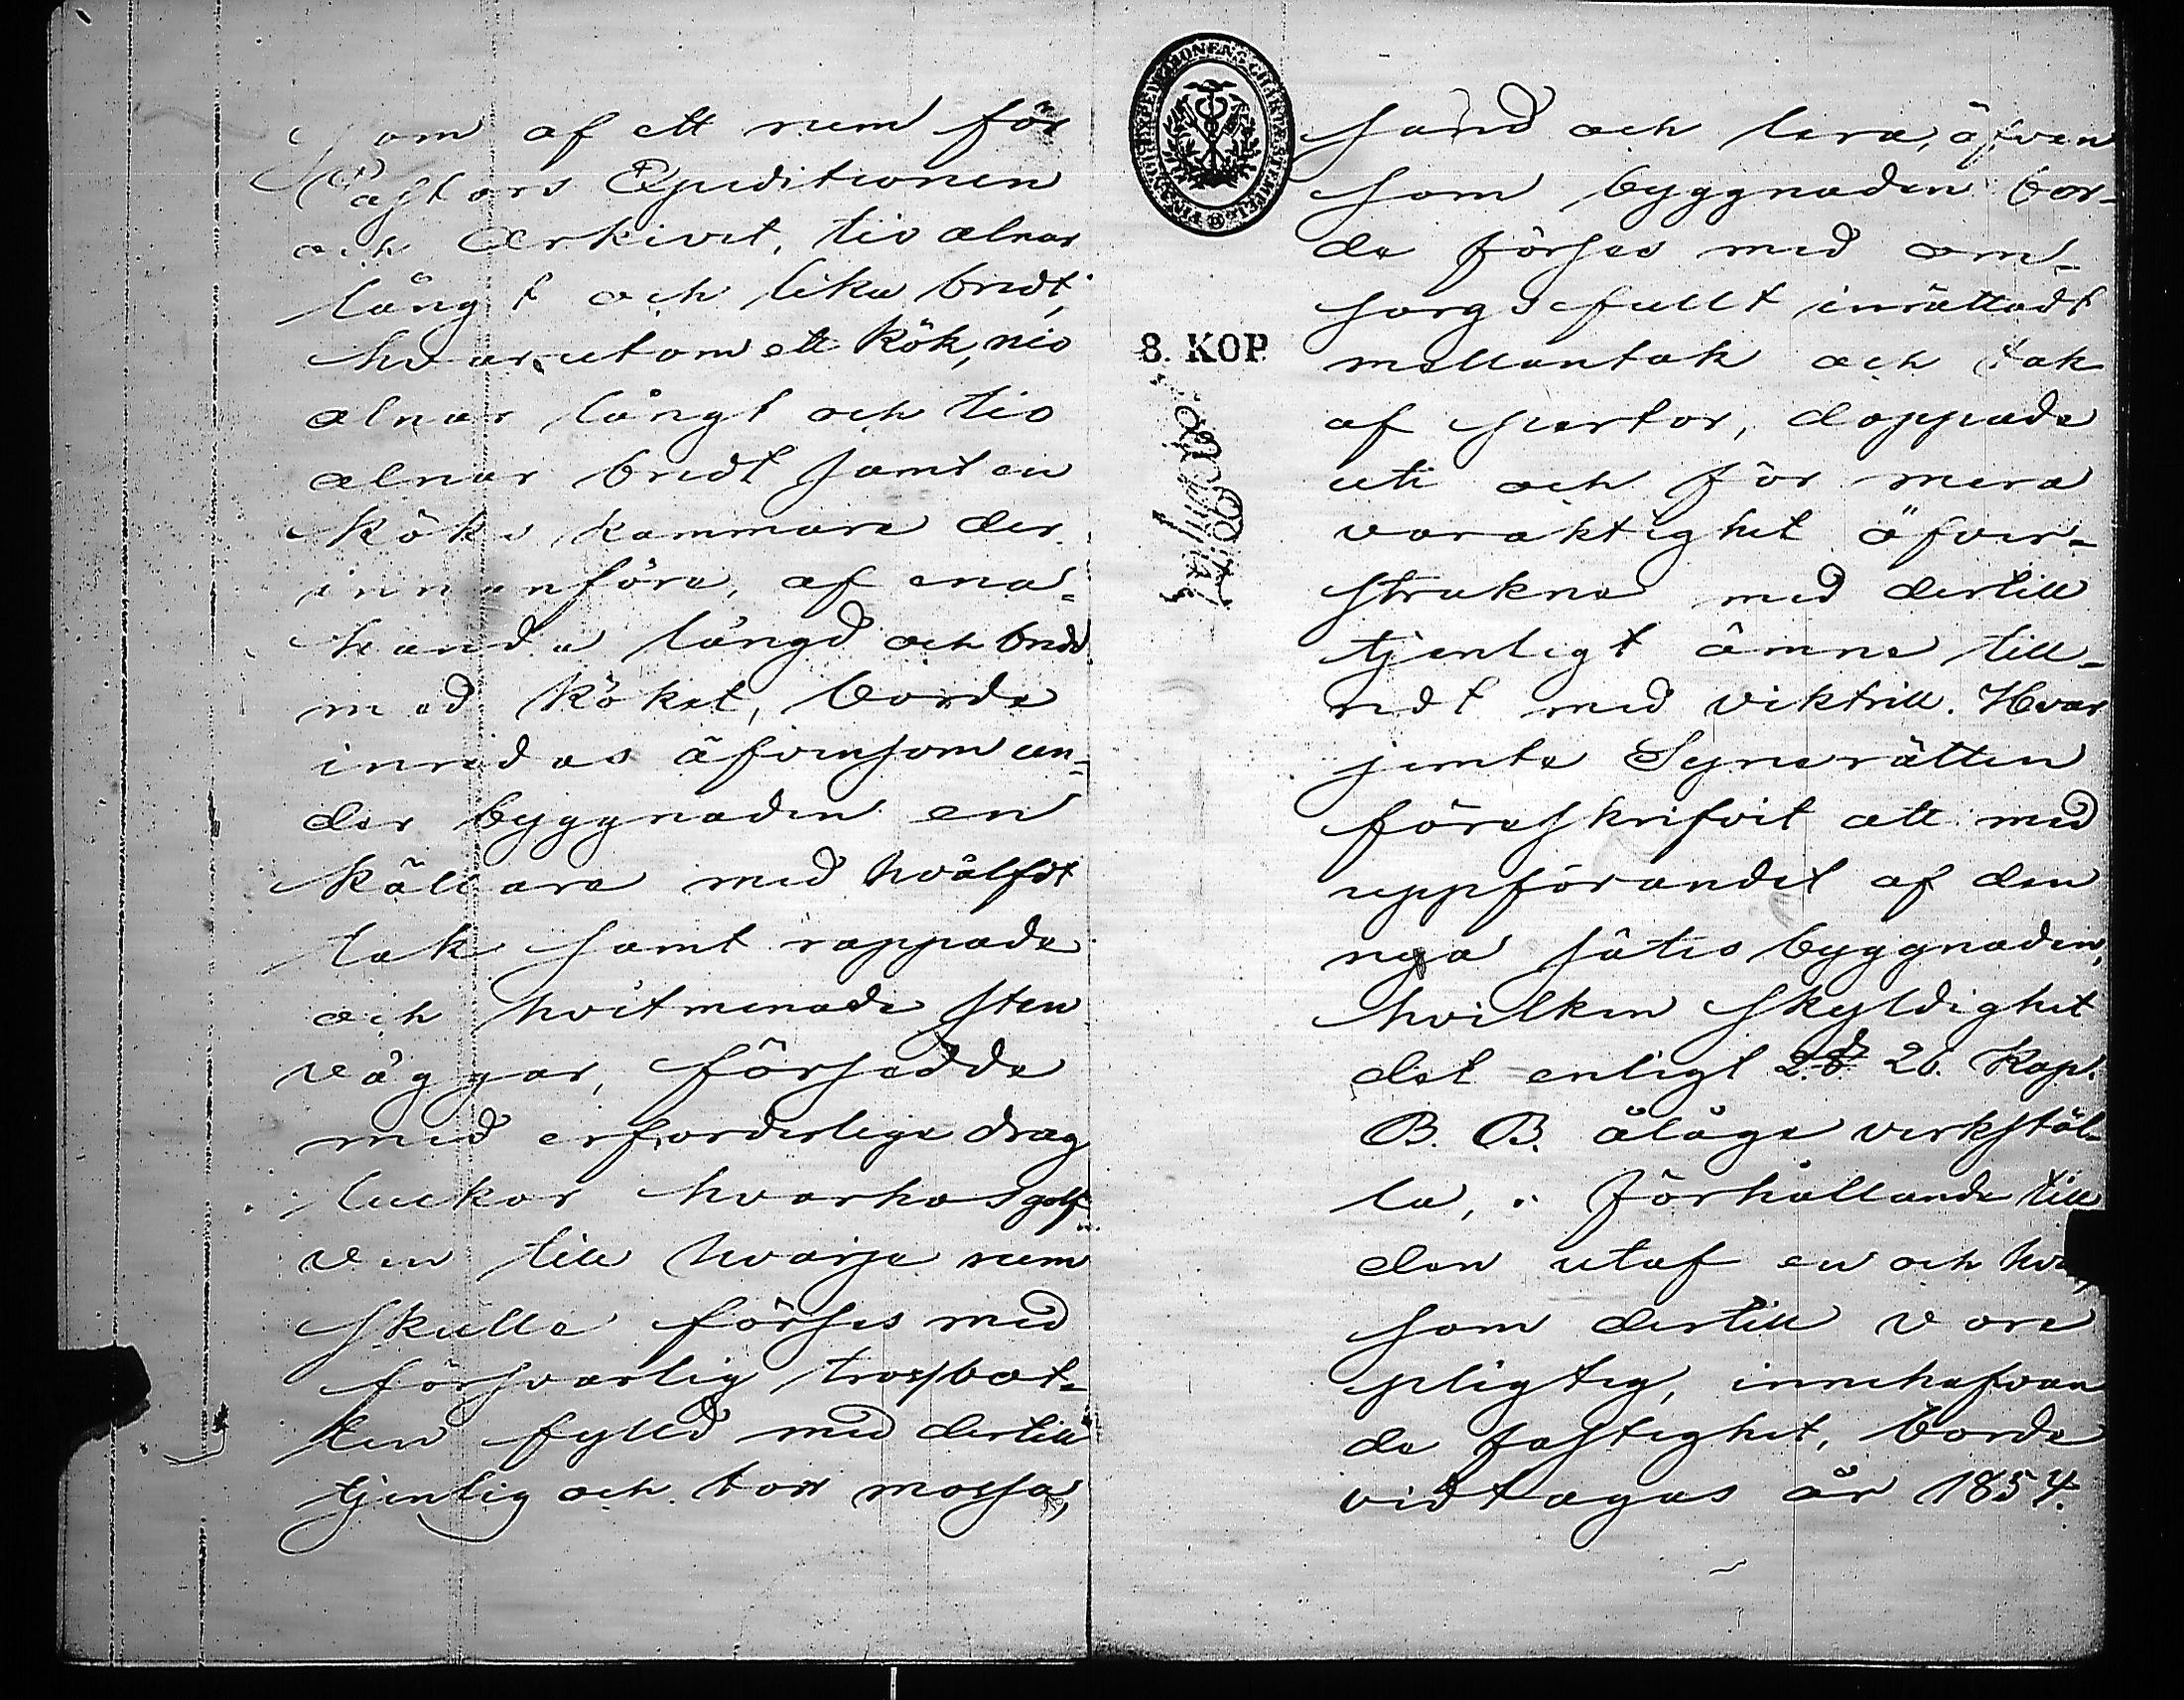 som af ett rum för
Pastors Expeditionen
och Arkivet, tio alnar
långt och lika bredt,
hvarutom ett Kök, nio
alnar långt och tio
alnar bredt samt en
Köks kammare der
innanföre, af ena-
handa längd och bredd
med Köket, borde
inredas äfvensom un-
der byggnaden en
Källare med hvälfdt
tak samt rappade
och hvitmenade sten
väggar, försedda
med erforderliga drag
luckor hvarhos golf-
ven till hvarje rum
skulle förses med
försvarlig trossbot-
ten fylld med dertill
tjenlig och torr mossa,
FINANSEXPEDITIONENS CHARTÆ STEMPEL
8. KOP.
sand och lera, äfven
som byggnaden bor-
de förses med om-
sorgsfullt inrättadt
mellantak och tak
af pertor, doppade
uti och för mera
varaktighet öfver-
strukne med dertill
tjenligt ämne till-
redt med viktrill. Hvar
jemte Synerätten
föreskrifvit att med
uppförandet af den
nya sätesbyggnaden,
hvilken skyldighet
det enligt 26. Kap.
B. B. åläge verkstäl-
la, i förhållande till
den utaf en och hvar,
som dertill vore
pligtig, innehafvan
de fastighet, borde
vidtagas år 1854.